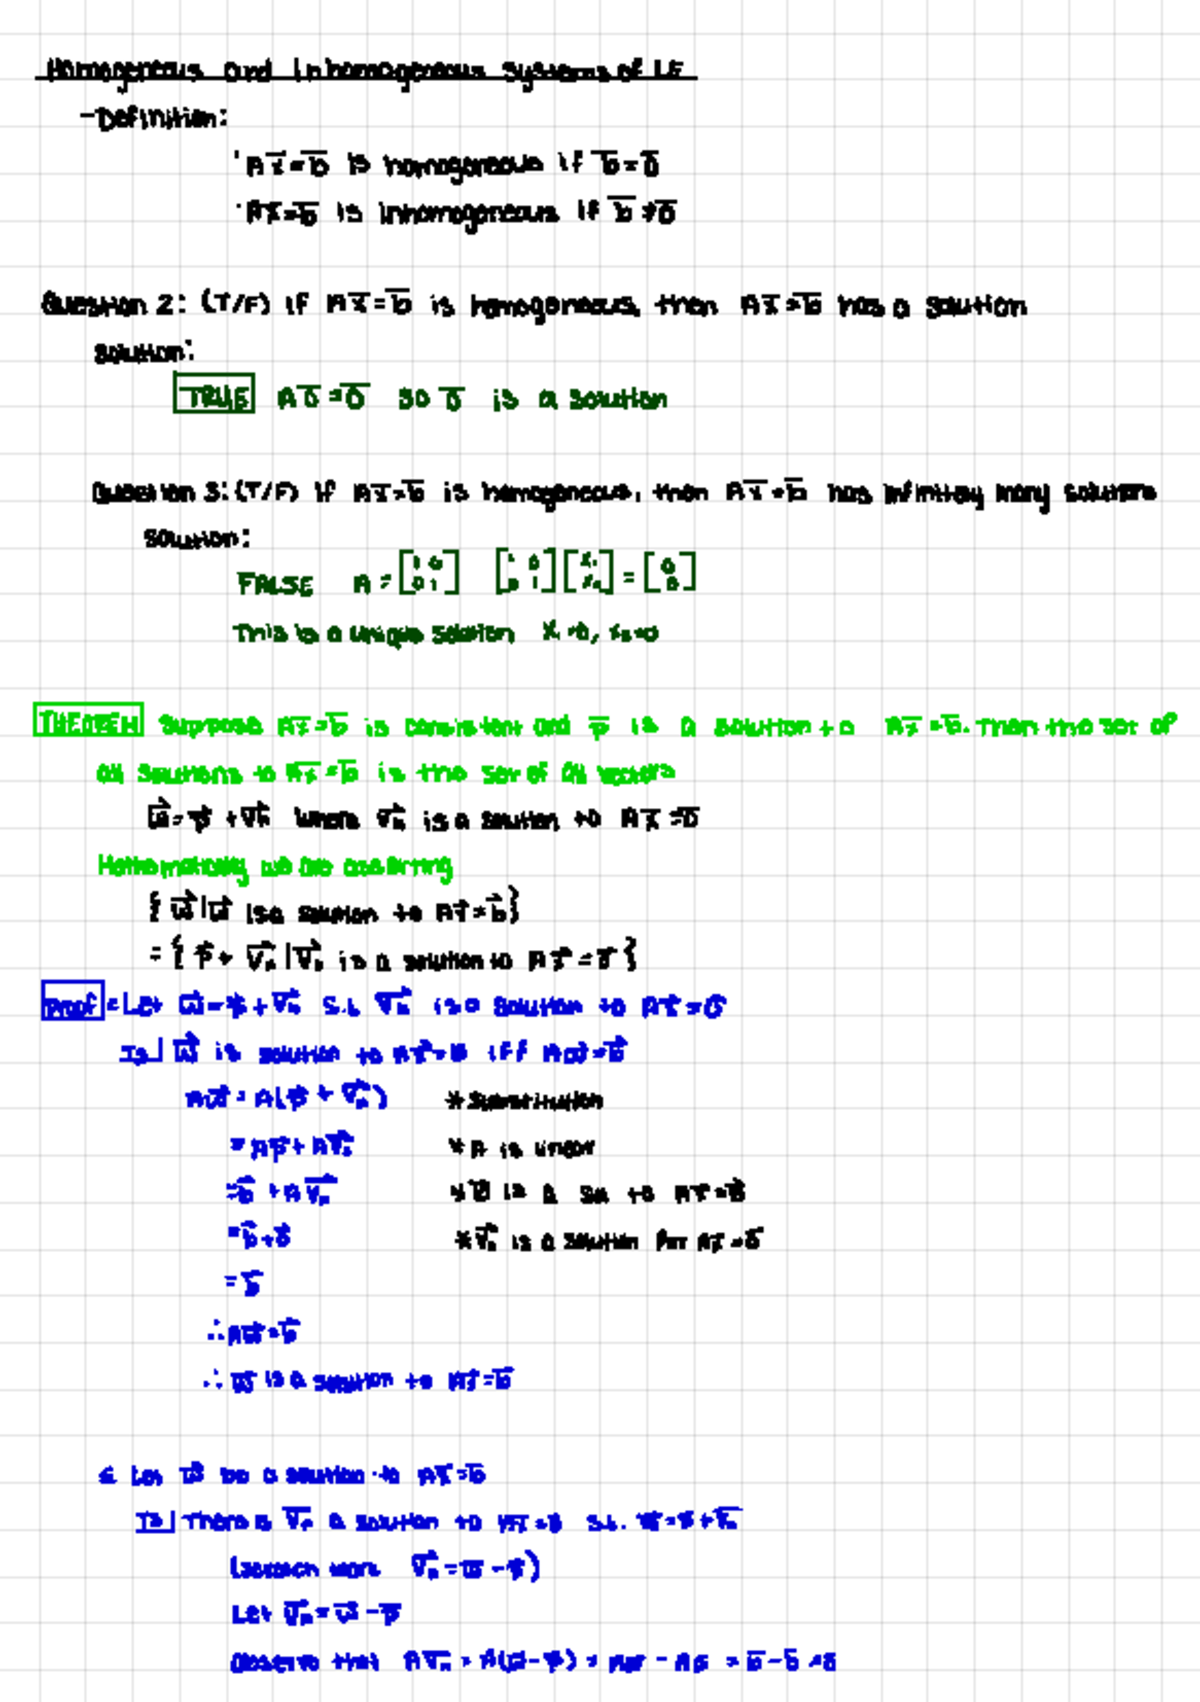 Homogeneous and Inhomogeneous Systems of LE
- Definition:
· Ax̄=b̄ is homogeneous if b̄=ō
· Ax̄=b̄ is inhomogeneous if b̄≠ō
Question 2: (T/F) if Ax̄=b̄ is homogeneous, then Ax̄=b̄ has a solution
solution:
TRUE Aō=ō so ō is a solution
Question 3: (T/F) if Ax̄=b̄ is homogeneous, then Ax̄=b̄ has infinitely many solutions
solution:
FALSE A=[1 0; 0 1] [1 0; 0 1][x₁; x₂]=[0; 0]
This is a unique solution x₁=0, x₂=0
THEOREM Suppose Ax̄=b̄ is consistent and p̄ is a solution to Ax̄=b̄. Then the set of
all solutions to Ax̄=b̄ is the set of all vectors
w⃗=p⃗+v⃗ₕ where v⃗ₕ is a solution to Ax̄=ō
Mathematically we are asserting
{w⃗|w⃗ is a solution to Ax⃗=b⃗}
={p⃗+v⃗ₕ|v⃗ₕ is a solution to Ax⃗=o⃗}
Proof Let w⃗=p⃗+v⃗ₕ s.t. v⃗ₕ is a solution to Ax⃗=o⃗
TS| w⃗ is solution to Ax⃗=b⃗ iff Aw⃗=b⃗
Aw⃗=A(p⃗+v⃗ₕ) *substitution
=Ap⃗+Av⃗ₕ *A is linear
=b⃗+Av⃗ₕ is a to
=b⃗+o⃗ *v⃗ₕ is a solution for Ax⃗=o⃗
=b⃗
∴Aw⃗=b⃗
∴w⃗ is a solution to Ax⃗=b⃗
Let w⃗ be a solution to Ax⃗=b⃗
TS| There is v⃗ₕ a solution to s.t. w⃗=p⃗+v⃗ₕ
(scratch work v⃗ₕ=w⃗-p⃗)
Let v⃗ₕ=w⃗-p⃗
Observe that Av⃗ₕ=A(w⃗-p⃗)=Aw⃗-Ap⃗=b⃗-b⃗=o⃗